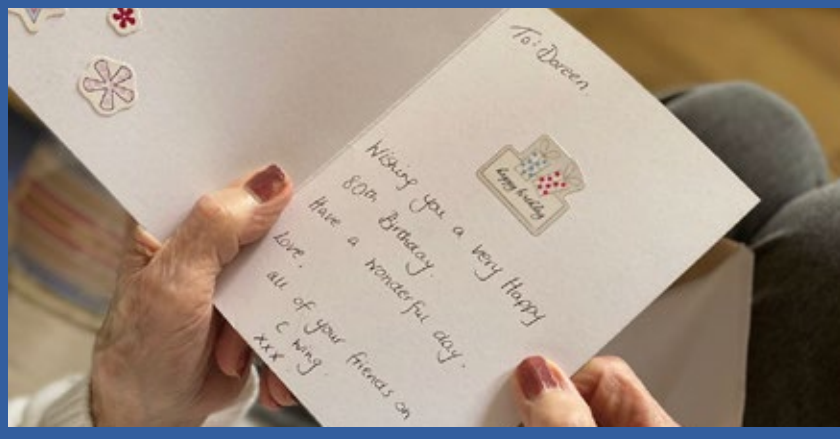 To: Doreen.
happy birthday
Wishing you a very Happy
80th Birthday.
Have a wonderful day.
Love,
all of your friends on
C wing.
xxx